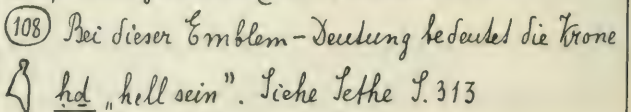 (108) Bei dieser Emblem-Deutung bedeutet die Krone
hd „hell sein”. Siehe Sethe S. 313